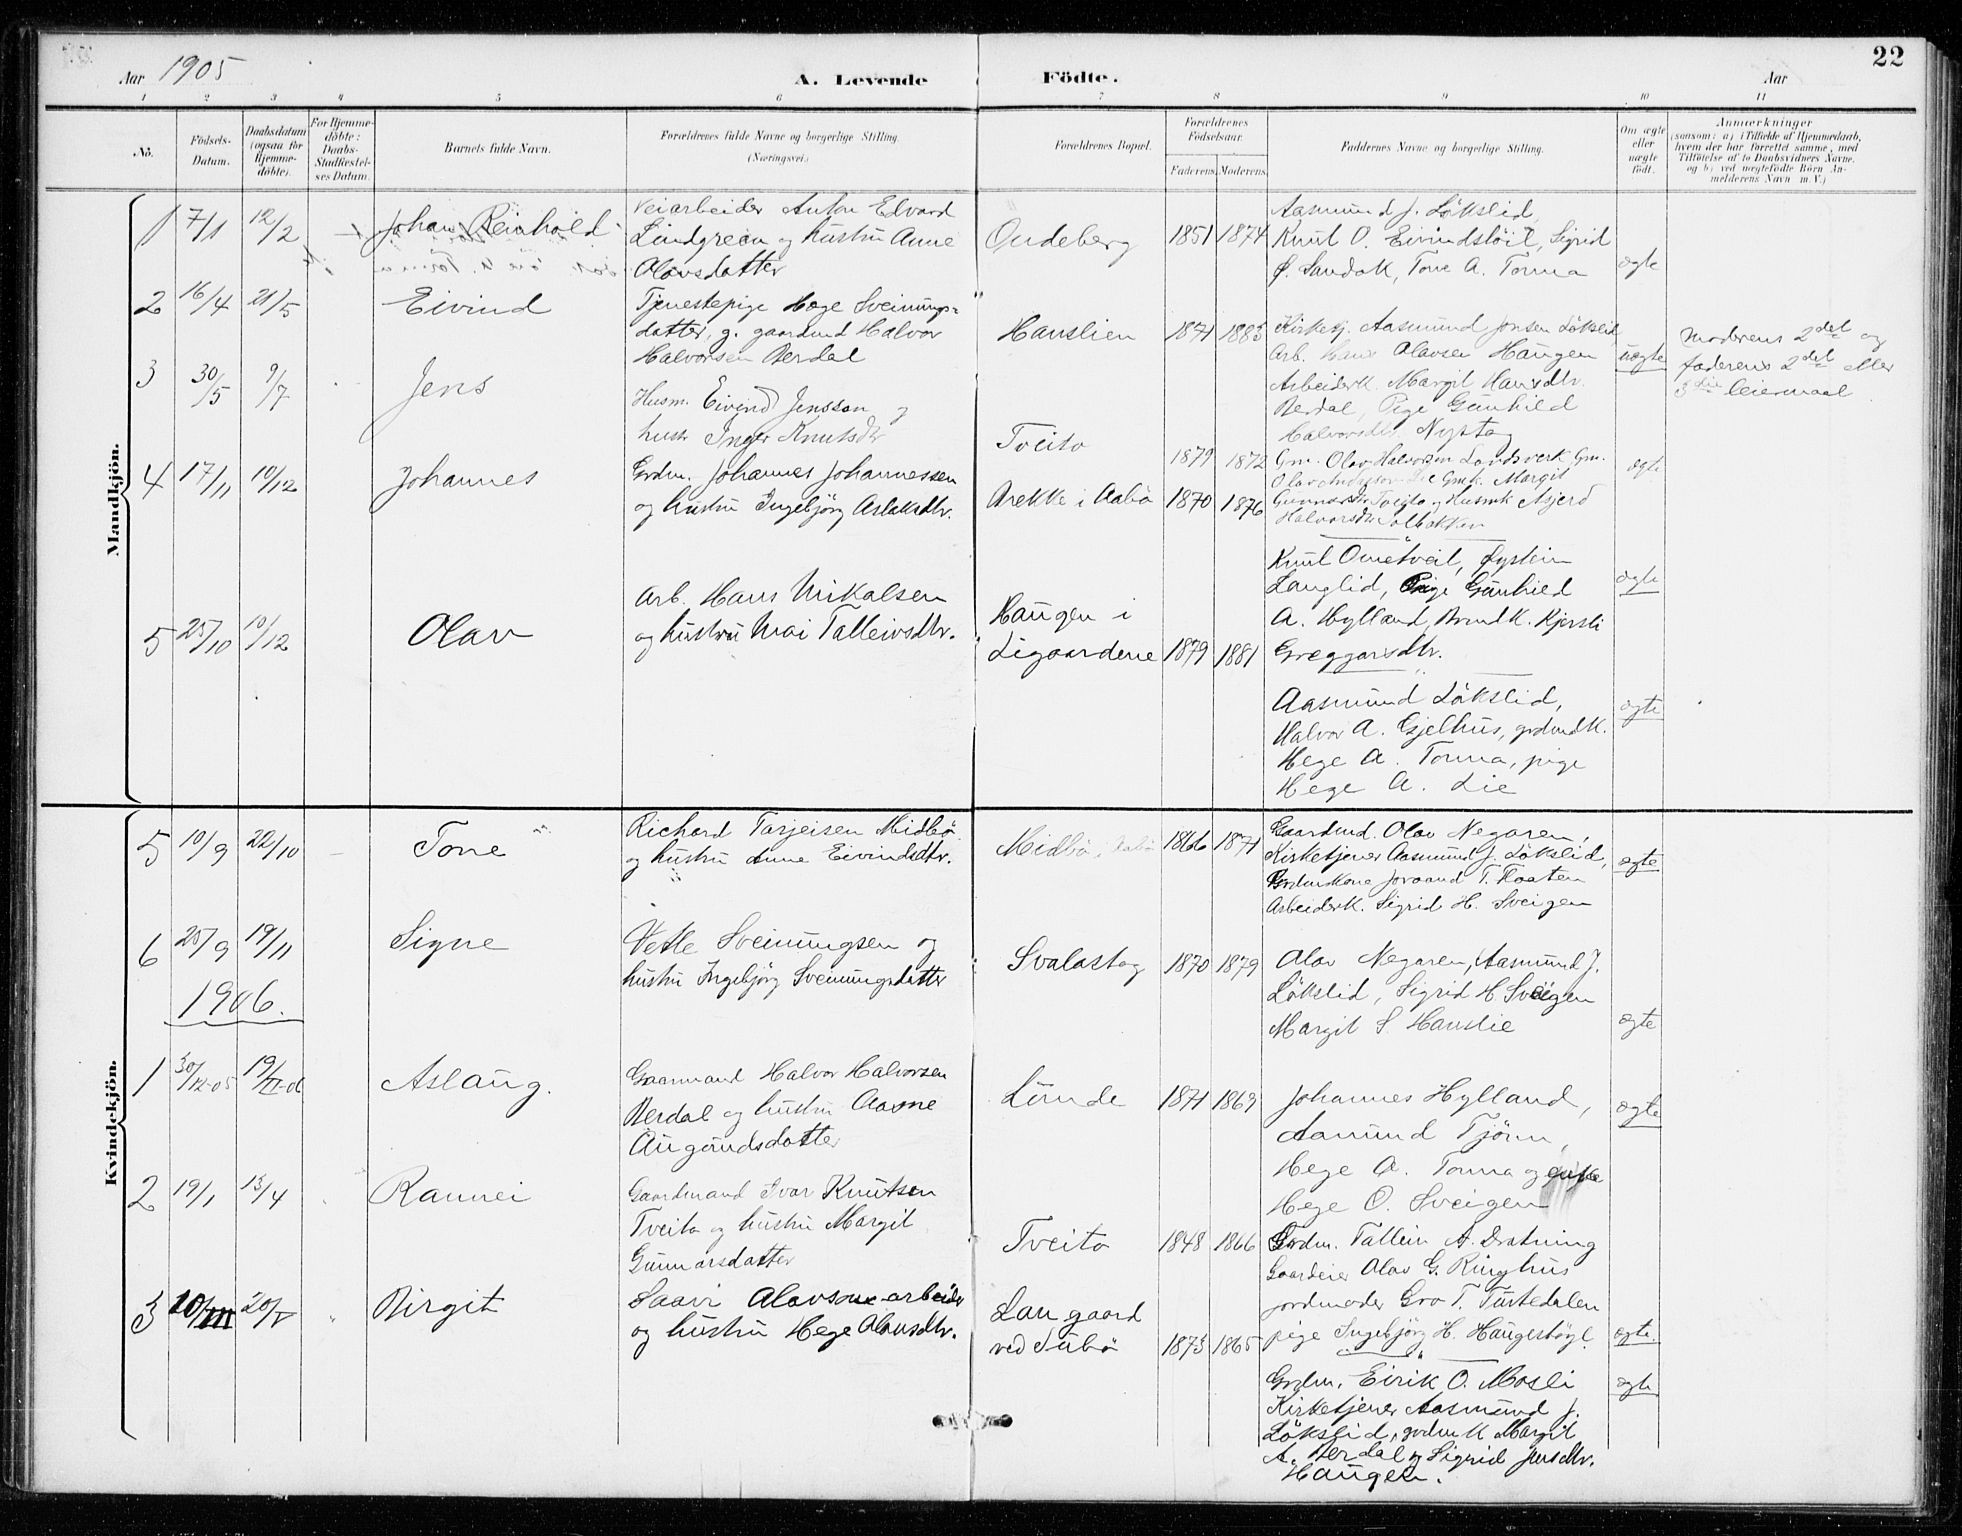 22
Aar 1905
A. Levende Födte.
Aar
1 2 3 4 5 6 7 8 9 10 11
No.
Födsels-Datum.
Daabsdatum (ogsaa for Hjemme-döbte).
For Hjemme-döbte: Daabs-Stadfæstel-ses Datum.
Barnets fulde Navn.
Forældrenes fulde Navne og borgerlige Stilling.
(Næringsvei.)
Forældrenes Bopæl.
Forældrenes Födselsaar.
Faderens. Moderens.
Faddernes Navne og borgerlige Stilling.
Om ægte eller uægte født.
Anmærkninger
(saasom: a) i Tilfælde af Hjemmedaab,
hvem der har forrettet samme, med
Tilföielse af to Daabsvidners Navne.
og b) ved uægtefödte Börn An-
melderens Navn m. V.)
Mandkjön.
1 7/1 12/2 Johan Reinhold
Veiarbeider Anton Edvard
Lindgreen og hustru Anne
Olavsdatter
Ondeberg 1851 1874
Aasmund J. Løkslid,
Knut O. Eivindstöil, Sigrid
Ø. Sandok, Tone A. Tonna
ægte
2 16/4 21/5 Eivind
Tjenestepige Hæge Sveinungs-
datter, g. gaardmd Halvor
Halvorsen Berdal
Hanslien 1871 1883
Kirketj. Aasmund Jonsen Løkslid
Arb. Hans Olavsen Haugen
Arbeiderk. Margit Hansdtr.
Berdal, Pige Gunhild
Halvorsdtr. Nystog
uægte
Moderens 2det og
faderens 2det eller
3die leiermaal
3 30/5 9/7 Jens
Husm. Eivind Jensson og
hustr Inger Knutsdtr
Tveito 1879 1872
Gm. Olav Halvorsen Landsverk Gm.
Olav Anderson Lie Gmk. Margit
Gunnarsdtr Tveito og Husmk Asjerd
Halvorsdtr Solbakken
ægte
4 17/11 10/12 Johannes
Grdm. Johannes Johannessen
og hustru Ingebjörg Aslaksdtr.
Brekke i Aabö 1870 1876
Knut Ometveit, Øystein
Langlid, Pige Gunhild
A. Hylland, Kjersti
Greggarsdtr.
ægte
5 25/10 10/12 Olav
Arb. Hans Mikalsen
og hustru Mai Talleivsdtr.
Haugen i
Ligaardene 1879 1881
Aasmund Løkslid,
Halvor A. Gjelhus, grdmdk.
Hege A. Tonna, pige
Hege A. Lie
ægte
Kvindekjön.
5 10/9 22/10 Tone
Richard Tarjeisen Midbö
og hustru Anne Eivindsdtr.
Midbö, Aabö 1866 1871
Gaardmd. Olav Negaren,
Kirketjener Aasmund J. Løkslid,
Grdmkone Joraand T. Flaaten
Arbeiderk. Sigrid H. Sveigen
ægte
6 25/9 19/11 Signe
Vetle Sveinungsen og
hustru Ingebjörg Sveinungsdatter
Svalastog 1870 1879
Olav Negaren, Aasmund J.
Løkslid, Sigrid H. Sveigen
Margit S. Hanslie
ægte
1906.
1 30/12-05 19/II-06 Aslaug.
Gaarmand Halvor Halvorsen
Berdal og hustru Aasne
Augundsdatter
Lønde 1871 1869
Johannes Hylland,
Aamund Tjönn,
Hege A. Tonna og enke
Hege O. Sveigen
ægte
2 19/1 13/4 Rannei
Gaardmand Ivar Knutsen
Tveito og hustru Margit
Gunnarsdatter
Tveito 1848 1866
Grdm. Talleiv A. Dratning
Gaardeier Olav G. Ringhus
jordmoder Gro T. Tustedalen
pige Ingebjörg H. Haugestöyl
ægte.
3 10/III 20/V Birgit
Saavi Olavson arbeider
og hustru Hege Olavsdtr.
Langaard
ved Tubö 1873 1865
Grdm. Eirik O. Mosli
Kirketjener Aasmund J.
Løkslid, grdmk Margit
A. Berdal og Sigrid Jensdtr.
Haugen.
ægte